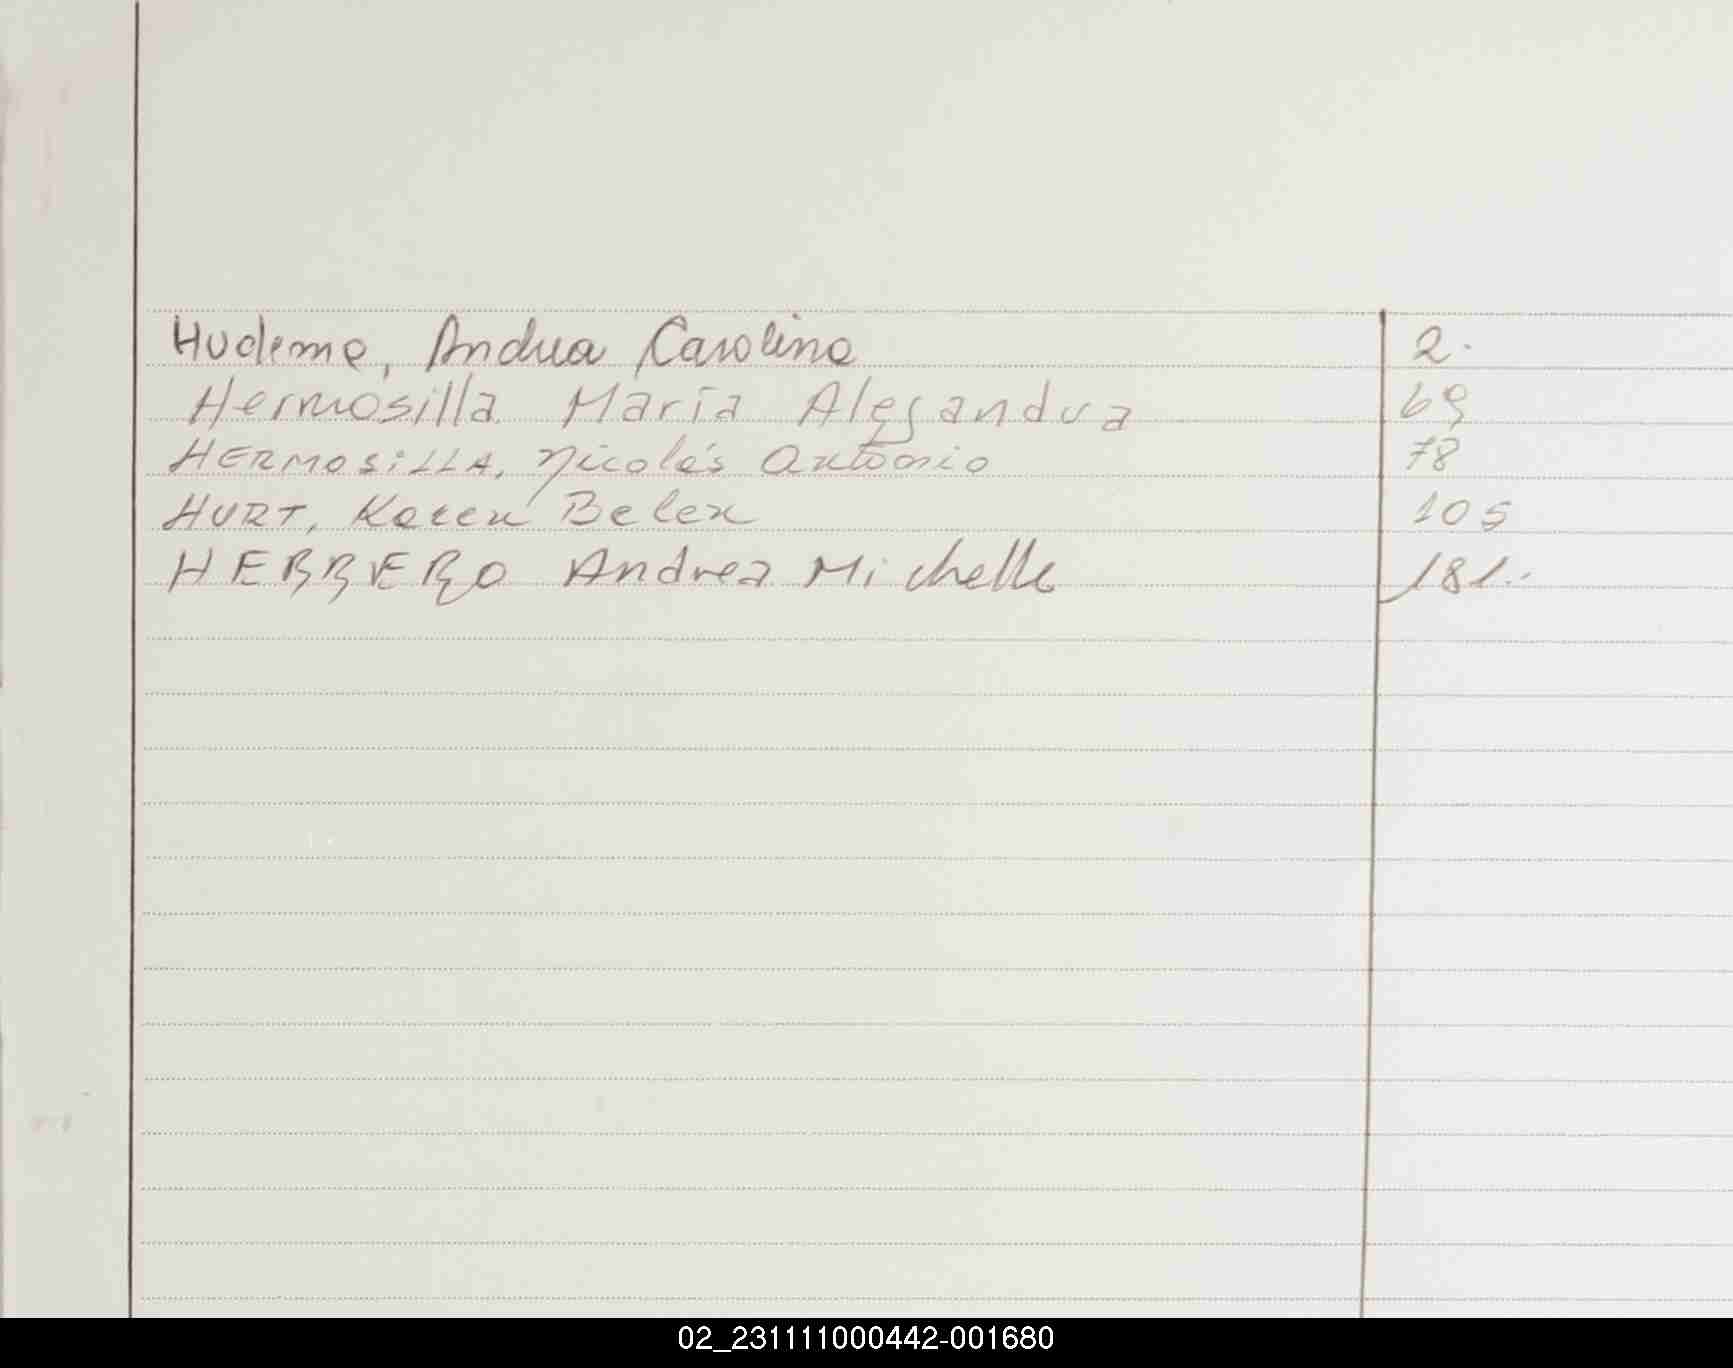 Hudema, Andrea Carolina 2.
Hermosilla María Alejandra 69
HERMOSiLLA, Nicolás Antonio 78
HURT, Karen Belen 105
HERRERO Andrea Michelle 181..
02_231111000442-001680